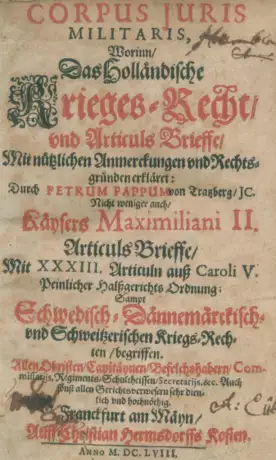 CORPUS JURIS
MILITARIS,
Worinn/
Das Holländische
Krieges-Recht/
und Articuls Brieffe/
Mit nützlichen Anmerckungen und Rechts-
gründen erkläret:
Durch PETRUM PAPPUM von Tratzberg/ JC.
Nicht weniger auch/
Käysers Maximiliani II.
Articuls Brieffe/
Mit XXXIII. Articuln auß Caroli V.
Peinlicher Halßgerichts Ordnung:
Sampt
Schwedisch-Dännemärckisch-
und Schweitzerischen Kriegs-Rech-
ten/ begriffen.
Allen Obristen/ Capitäynen/ Befelchshabern/ Com-
missariis, Regiments-Schultheissen/ Secretariis, &c. Auch
sonst allen Gerichtsverwesern sehr dien-
lich und hochnötig.
Franckfurt am Mäyn/
Auff Christian Hermsdorffs Kosten.
ANNO M. DC. LVIII.